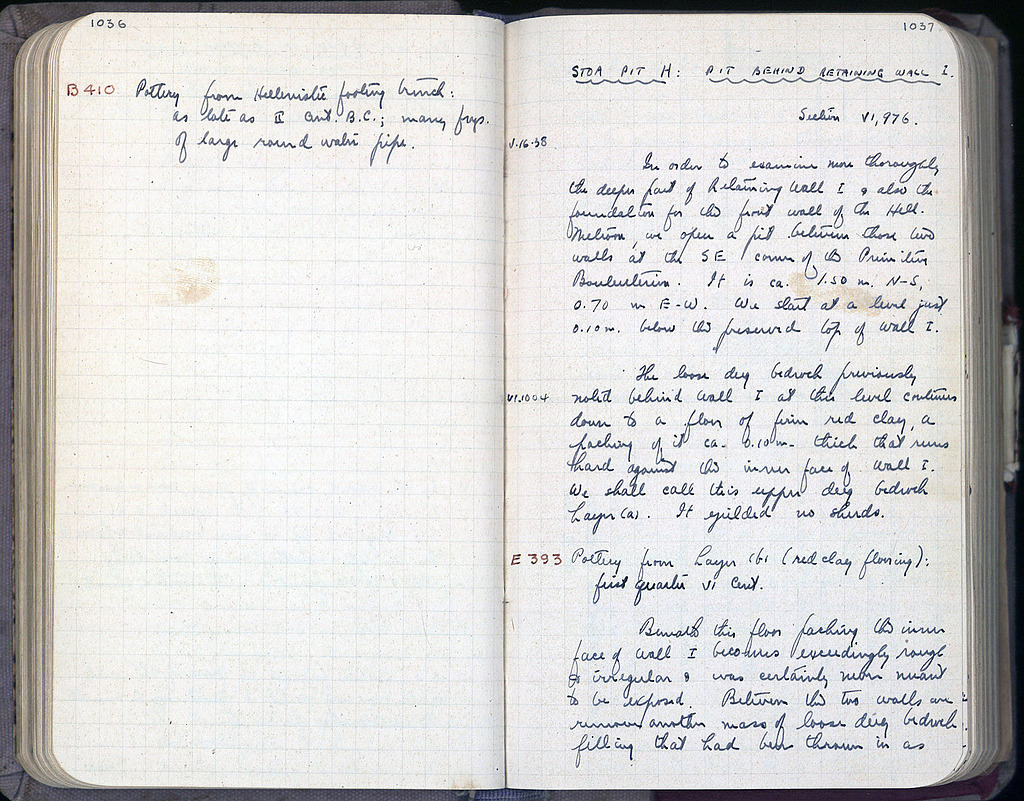 1036
B 410 Pottery from Hellenistic footing trench:
as late as II Cent. B.C.; many frgs.
of large round water pipe.
1037
STOA PIT H: PIT BEHIND RETAINING WALL I.
Section VI, 976.
V-16-38
In order to examine more thoroughly
the deeper part of Retaining Wall I & also the
foundation for the front wall of the Hell.
Metroon, we open a pit between those two
walls at the SE corner of the Primitive
Bouleuterion. It is ca. 1.50 m. N-S,
0.70 m E-W. We start at a level just
0.10 m. below the preserved top of Wall I.
The loose dug bedrock previously
VI.1004 noted behind Wall I at this level continues
down to a floor of firm red clay, a
packing of it ca. 0.10 m. thick that runs
hard against the inner face of Wall I.
We shall call this upper dug bedrock
Layer (a). It yielded no sherds.
E 393 Pottery from Layer (b) (red clay flooring):
first quarter VI Cent.
Beneath this floor packing the inner
face of Wall I becomes exceedingly rough
& irregular & was certainly never meant
to be exposed. Between the two walls we
remove another mass of loose dug bedrock
filling that had been thrown in as